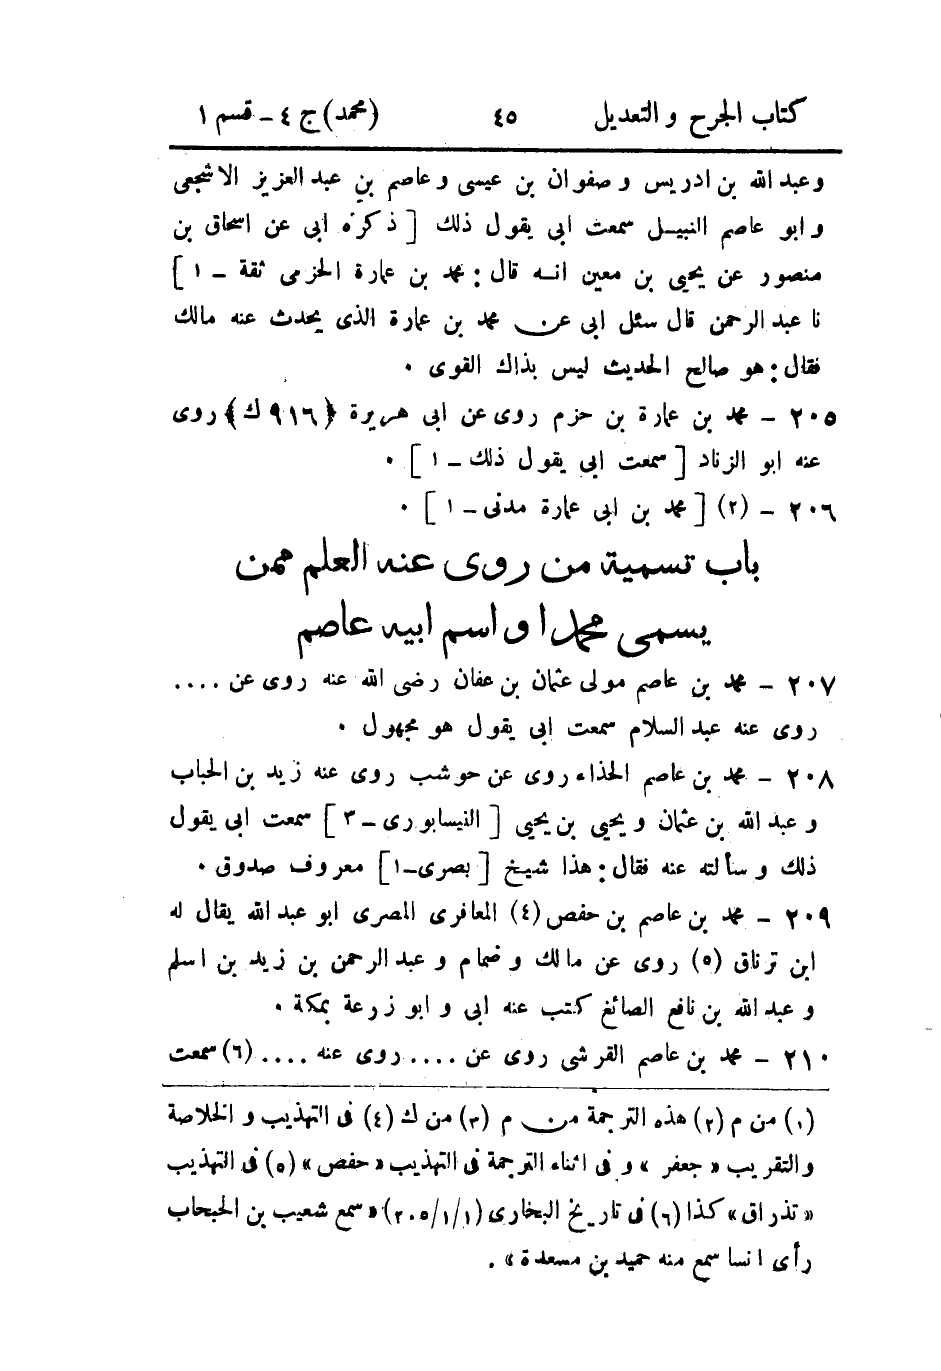 كتاب الجرح و التعديل ٤٥ (محمد) ج ٤ - قسم ١
وعبد الله بن ادريس و صفوان بن عيسى و عاصم بن عبد العزيز الاشجعى
و ابو عاصم النبيل سمعت ابى يقول ذلك [ ذكره ابى عن اسحاق بن
منصور عن يحيى بن معين انه قال : محمد بن عمارة الحزمى ثقة - ١ ]
نا عبد الرحمن قال سئل ابى عن محمد بن عمارة الذى يحدث عنه مالك
فقال : هو صالح الحديث ليس بذاك القوى .
٢٠٥ - محمد بن عمارة بن حزم روى عن ابى هريرة ﴿٩١٦ ك﴾ روى
عنه ابو الزناد [ سمعت ابى يقول ذلك - ١ ] .
٢٠٦ - (٢) [ محمد بن ابى عمارة مدنى - ١ ] .
باب تسمية من روى عنه العلم ممن
يسمى محمدا و اسم ابيه عاصم
٢٠٧ - محمد بن عاصم مولى عثمان بن عفان رضى الله عنه روى عن ....
روى عنه عبد السلام سمعت ابى يقول هو مجهول .
٢٠٨ - محمد بن عاصم الحذاء روى عن حوشب روى عنه زيد بن الحباب
و عبد الله بن عثمان و يحيى بن يحيى [ النيسابورى - ٣ ] سمعت ابى يقول
ذلك و سألته عنه فقال : هذا شيخ [ بصرى - ١ ] معروف صدوق .
٢٠٩ - محمد بن عاصم بن حفص (٤) المعافرى المصرى ابو عبد الله يقال له
ابن ترناق (٥) روى عن مالك و ضمام و عبد الرحمن بن زيد بن اسلم
و عبد الله بن نافع الصائغ كتب عنه ابى و ابو زرعة بمكة .
٢١٠ - محمد بن عاصم القرشى روى عن .... روى عنه .... (٦) سمعت
(١) من م (٢) هذه الترجمة من م (٣) من ك (٤) فى التهذيب و الخلاصة
والتقريب « جعفر » و فى اثناء الترجمة فى التهذيب « حفص » (٥) فى التهذيب
« تذراق » كذا (٦) فى تاريخ البخارى (١/١/٢٠٥) « سمع شعيب بن الحبحاب
رأى انسا سمع منه حميد بن مسعدة » .